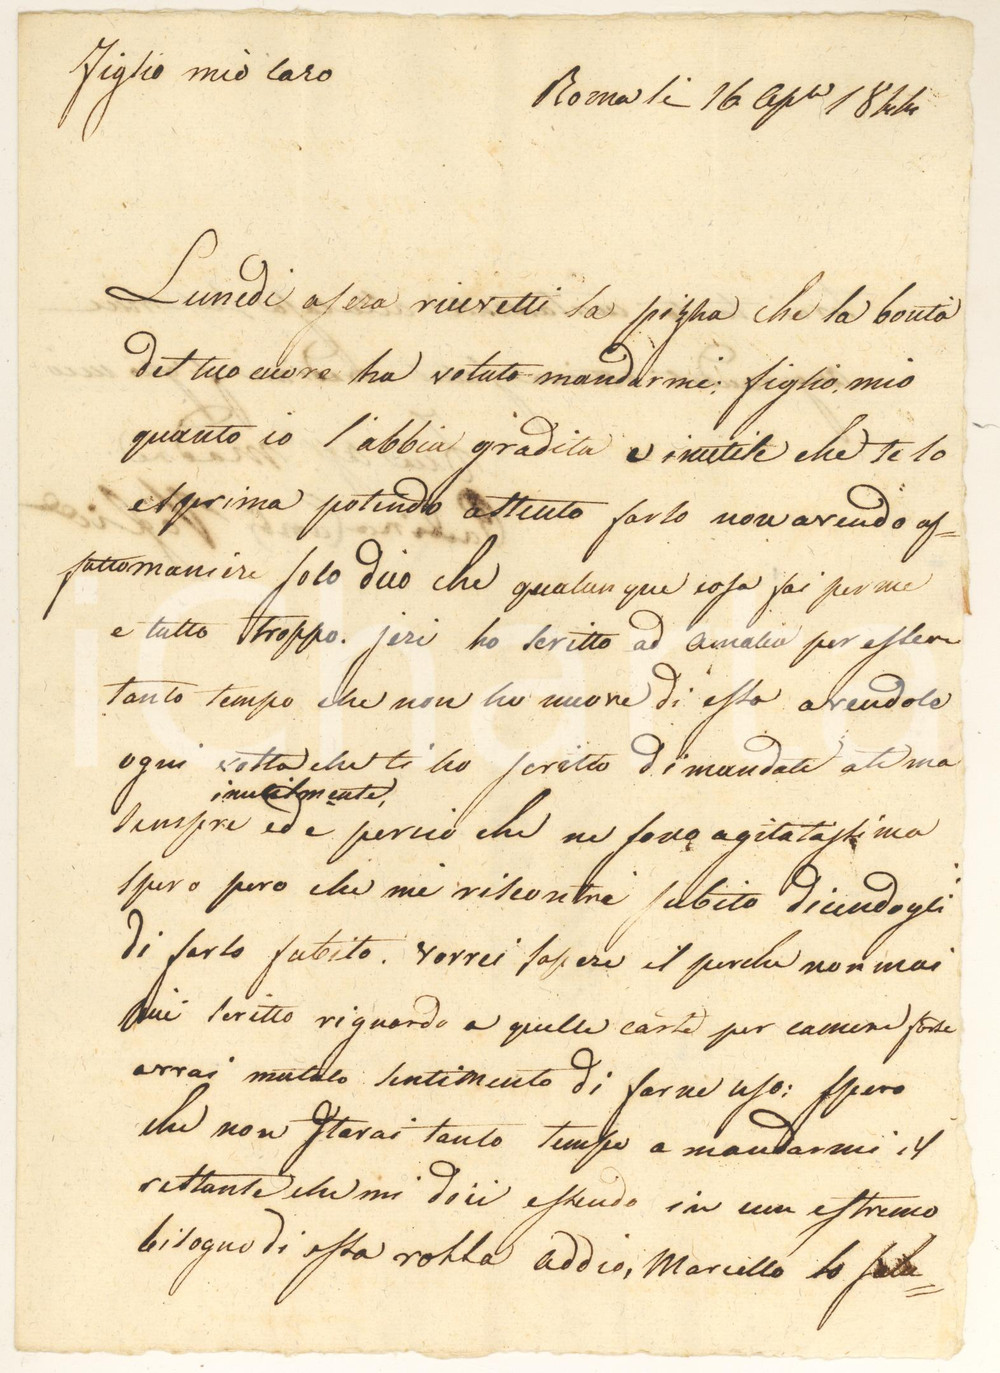 Figlio mio caro
Roma li 16 Aple 1844
Lunedi a sera ricevetti la piglia che la bontà
del tuo cuore ha voluto mandarmi; figlio, mio
quanto io l'abbia gradita e inutile che te lo
esprima potendo a stento farlo non avendo af=
fatto maniere solo dico che qualunque cosa fai per me
e tutto troppo. jeri ho scritto ad Amalia per essere
tanto tempo che non ho nuove di essa avendole
ogni volta che ti ho scritto dimandate a te ma
inutilmente,
sempre ed e perciò che ne sono agitatassima
spero pero che mi riscontri subito dicendogli
di farlo subito. vorrei sapere il perche non mai
hai scritto riguardo a quelle carte per camere forse
avrai mutato sentimento di farne uso: spero
che non starai tanto tempo a mandarmi il
restante che mi dici essendo in un estremo
bisogno di essa robba addio, Marcello lo salu=